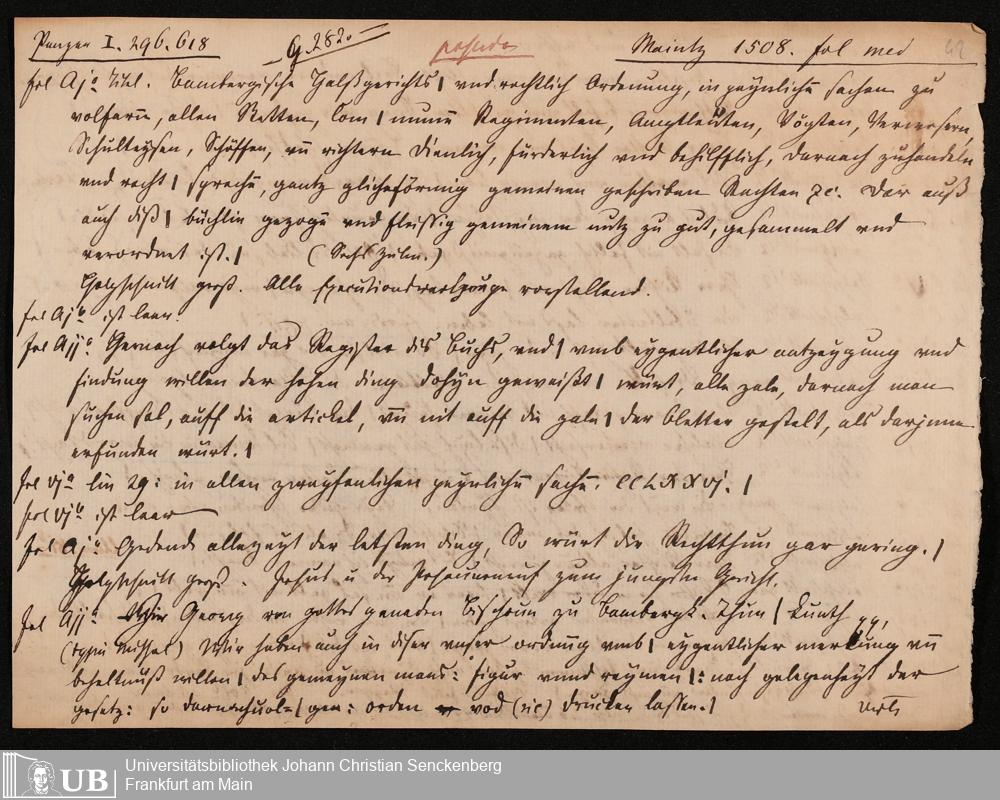 Panzer I. 296. 618 G 282. pseudo Maintz 1508. fol med 42
fol Aja Titel. Bambergische Halszgerichts | vnd rechtlich Ordenung, in peynlichn sachen zu
volfarn, allen Stetten, Com | munen Regimenten, Amptleuten, Vögten, Verwesern,
Schulteysen, Schöffen, vn richtern dienlich, fürderlich vnd behilfflich, darnach zuhandeln
vnd recht | sprechn, gantz gleichförmig gemeinen geschriben Rechten zc. Dar ausz
auch disz | büchlin gezogn vnd fleissig gemeinem nutz zu gut, gesammelt vnd
verordnet ist. | (Sechs Zyln.)
Holzschnitt gross. Alle Executionswerkzeuge vorstellend.
fol Ajb ist leer.
fol Aija Hernach volgt das Register dis Buchs, vnd | vmb eygentlicher antzeygung vnd
findung willen der hohen ding dohyn geweiszt | würt, alle zale, darnach man
suchen sol, auff die artickel, vn nit auff die zale | der bletter gestelt, als darjnne
erfunden würt. |
fol vja lin 29: in allen zweyfenlichen peynlichn sachn. CCLXXvj. |
fol vjb ist leer
fol aja Gedenck allezeyt der letsten ding, So würt dir Rechtthun gar gering. |
Holzschnitt gross. Jesus u der Posaunenruf zum jüngsten Gericht.
fol Aija Wir Georg von gottes genaden Bischoue zu Bambergk. Thun | Kunth
(typis missal) Wir haben auch in diser vnser ordnung vmb | eygentlicher merckung vn
beheltnusz willen | des gemeynen mans: figur vnnd reymen |: nach gelegenheyt der
gesetz: so darnachuol= | gen: orden vod (sic) drucken lassen. | verte
Universitätsbibliothek Johann Christian Senckenberg
Frankfurt am Main
UB